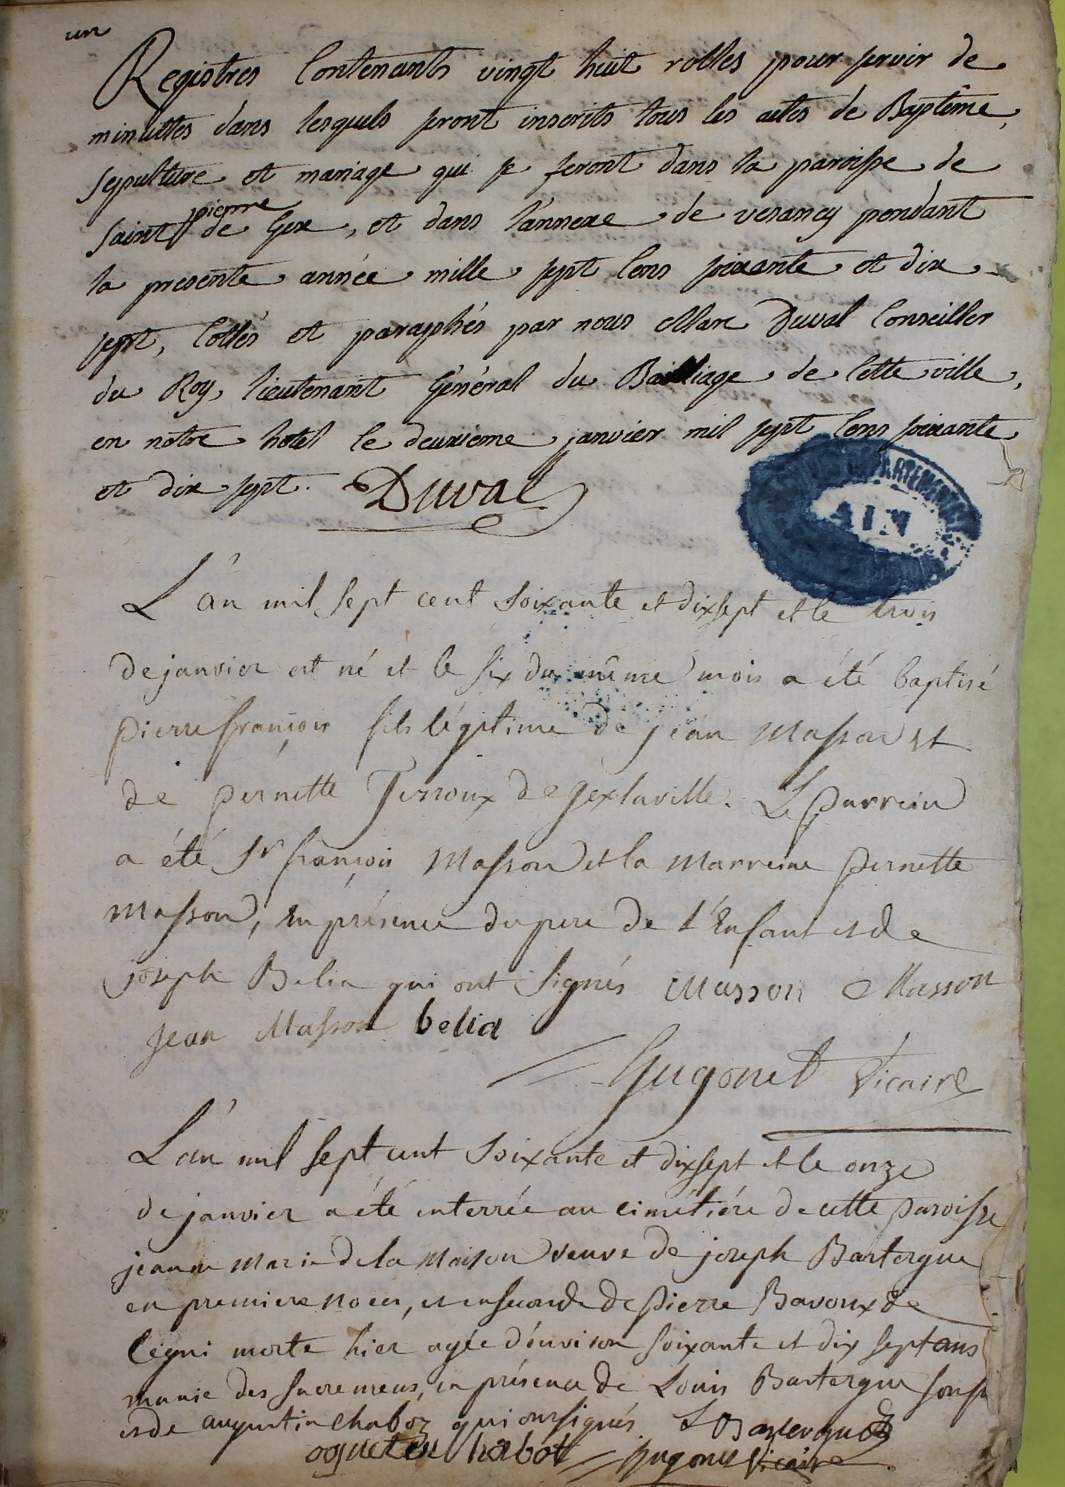 un
Registres Contenants vingt huit rolles pour servir de
minuttes dans lesquels seront inscrits tous les actes de Baptême,
sepulture et mariage qui se feront dans la paroisse de
saint pierre de Gex, et dans l'annexe de vesancy pendant
la presente année mille sept Cens soixante et dix
sept, Cottés et paraphés par nous Marc Duval Conseiller
du Roy, lieutenant Général du Bailliage de Cette ville,
en notre hotel le deuxieme janvier mil sept Cens soixante
et dix sept. Duval
AIN
L'an mil sept cent soixante et dixsept et le trois
de janvier est né et le six du même mois a été baptisé
pierre françois fils légitime de jean Masson et
de pernette Terroux de Gex la ville. Le parrein
a été Sr françois Masson et la Marreine pernette
Masson, en présence du pere de l'Enfant et de
joseph Belia qui ont signés Masson Masson
Jean Masson belia
Hugonet Vicaire
L'an mil sept cent soixante et dixsept et le onze
de janvier a été enterrée au cimétiére de cette paroisse
jeanne Marie de la Maison veuve de joseph Bartergue
en premiere noces, et en seconde de pierre Bavoux de
Cegni morte hier agée d'environ soixante et dix sept ans
munie des sacremens, en présence de Louis Bartergue son fils
et de augustin Chaboz qui ont signés L Bartergue
ogueten habot Hugonet Vicaire